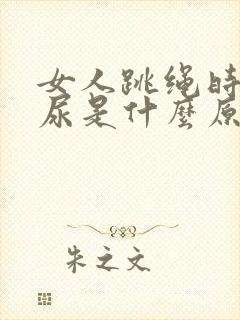 女人跳绳时
尿是什麼原
朱之文